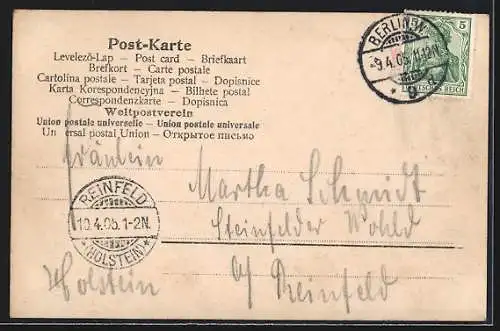 Post-Karte
Levelező-Lap — Post card — Briefkaart
Brefkort — Carte postale
Cartolina postale — Tarjeta postal — Dopisnice
Karta Korespondencyjna — Bilhete postal
Correspondenzkarte — Dopisnica
Weltpostverein
Union postale universelle — Union postale universale
Un ersal postal Union — Открытое письмо
BERLIN
9.4.05. 11-12V.
5
REICH
Fräulein
Martha Schmidt
Steinfelder Wohld
b/ Reinfeld
Holstein
REINFELD
10.4.05. 1-2N.
(HOLSTEIN)